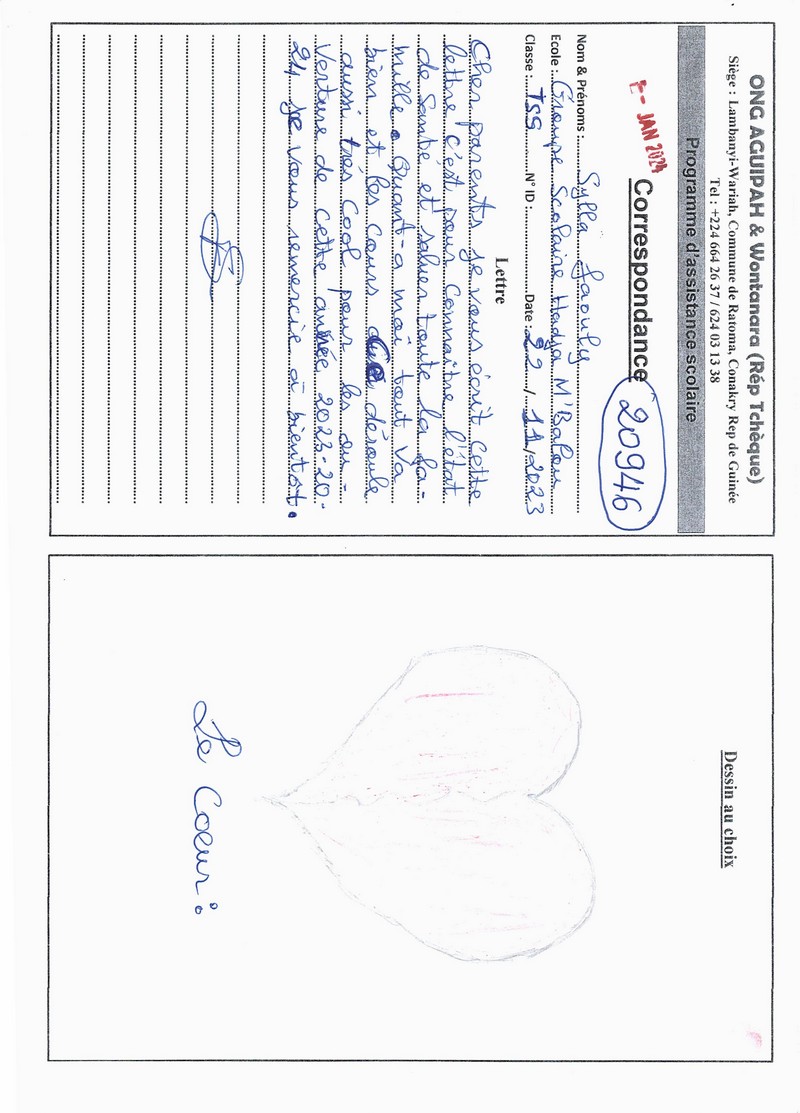 ONG AGUIPAH & Wontanara (Rép Tchèque)
Siège : Lambanyi-Wariah, Commune de Ratoma, Conakry Rep de Guinée
Tel : +224 664 26 37 / 624 03 13 38
Programme d'assistance scolaire
- JAN 2024
Correspondance
20946
Nom & Prénoms : Sylla Faouly
Ecole : Groupe Scolaire Hadja M'Balou
Classe : TSS N° ID : Date : 22 / 11 / 2023
Lettre
Cher parents je vous écrit cette
lettre c'est pour connaître l'état
de Santé et saluer toute la fa-
mille. Quant-a moi tout va
bien et les cours déroule
aussi très cool pour les ou-
verture de cette année 2023-20-
24 je vous remercie à bientôt.
Dessin au choix
Le Coeur :